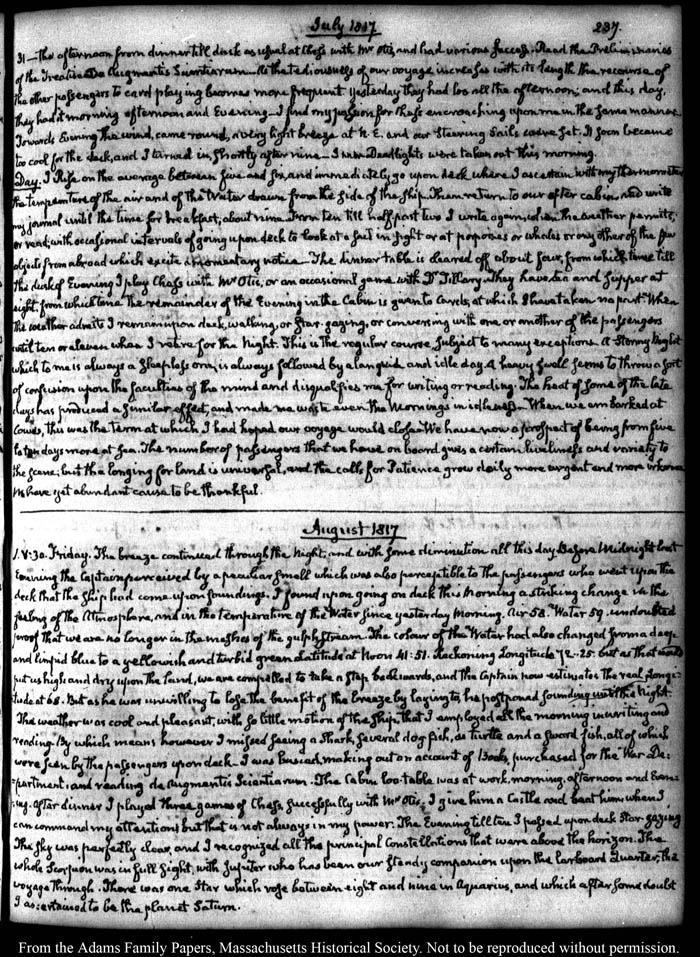 July 1817
237.
31— The afternoon from dinner till dusk as usual at Chess with Mr Otis, and had various success. Read the Preliminaries
of the Treatise De Augmentis Scientiarum. As the tediousness of our voyage increases with its length the recourse of
the other passengers to card playing becomes more frequent yesterday they had loo all the afternoon; and this day,
they had it morning afternoon and Evening— I find my passion for Chess encroaching upon me in the same manner.
Towards Evening the wind, came round, a very light breeze at N.E. and our Steering Sails were set. It soon became
too cool for the deck, and I turned in, shortly after nine— Deadlights were taken out this morning.
Day. I Rise on the average between five and six, and immediately go upon deck where I ascertain with my thermometer
the temperature of the air and of the Water drawn from the side of the Ship. Then return to our after cabin, and write
my journal until the time for breakfast, about nine. From ten till half past two I write again, when the weather permits,
or read; with occasional intervals of going upon deck to look at a Sail in sight or at porpoises or whales or any other of the few
objects from abroad which excite a momentary notice— The dinner table is cleared off about four, from which time till
the dusk of Evening I play Chess with Mr Otis, or an occasional game with Dr Tillary. They have tea and supper at
eight, from which time the remainder of the Evening in the Cabin is given to Cards, at which I have taken no part. When
the weather admits I remain upon deck, walking, or Star-gazing, or conversing with one or another of the passengers
until ten or eleven when I retire for the Night. This is the regular course, subject to many exceptions. A Stormy Night
which to me is always a Sleepless one, is always followed by a languid and idle day. A heavy Swell seems to throw a sort
of confusion upon the faculties of the mind and disqualifies me for writing or reading. The heat of some of the late
days has produced a similar effect, and made me waste even the Mornings in idleness— When we embarked at
Cowes, this was the term at which I had hoped our voyage would close— We have now a prospect of being from five
to ten days more at sea. The number of passengers that we have on board gives a certain liveliness and variety to
the scene; but the longing for land is universal, and the calls for Patience grow daily more urgent and more irksome
We have yet abundant cause to be thankful.
August 1817
1. V:30. Friday. The breeze continued through the Night, and with some diminution all this day. Before Midnight last
Evening the Captain perceived by a peculiar smell which was also perceptible to the passengers who went upon the
deck that the Ship had come upon soundings. I found upon going on deck this Morning a striking change in the
feeling of the Atmosphere, and in the temperature of the Water since yesterday Morning. Air 58. Water 59. undoubted
proof that we are no longer in the meshes of the gulph stream. The colour of the Water had also changed from a deep
and limpid blue to a yellowish and turbid green. Latitude at Noon 41:51. Reckoning Longitude 72-25. but as that would
put us high and dry upon the land, we are compelled to take a step backwards, and the Captain now estimates the real Longi-
tude at 68. But as he was unwilling to lose the benefit of the breeze by laying to, he postponed sounding until the Night
The weather was cool and pleasant, with so little motion of the Ship, that I employed all the morning in writing and
reading. By which means however I missed seeing a Shark, several dog fish, a turtle and a sword fish, all of which
were seen by the passengers upon deck— I was busied, making out an account of Books, purchased for the War De-
partment; and reading de Augmentis Scientiarum. The Cabin loo-table was at work, morning, afternoon and Even-
ing. After dinner I played three games of Chess successfully with Mr Otis; I give him a Castle and beat him when I
can command my attention; but that is not always in my power. The Evening till ten I passed upon deck Star-gazing
The sky was perfectly clear, and I recognized all the principal Constellations that were above the horizon. The
whole Scorpion was in full sight, with Jupiter who has been our steady companion upon the larboard Quarter, the
voyage through. There was one Star which rose between eight and nine in Aquarius, and which after some doubt
I ascertained to be the planet Saturn.
From the Adams Family Papers, Massachusetts Historical Society. Not to be reproduced without permission.